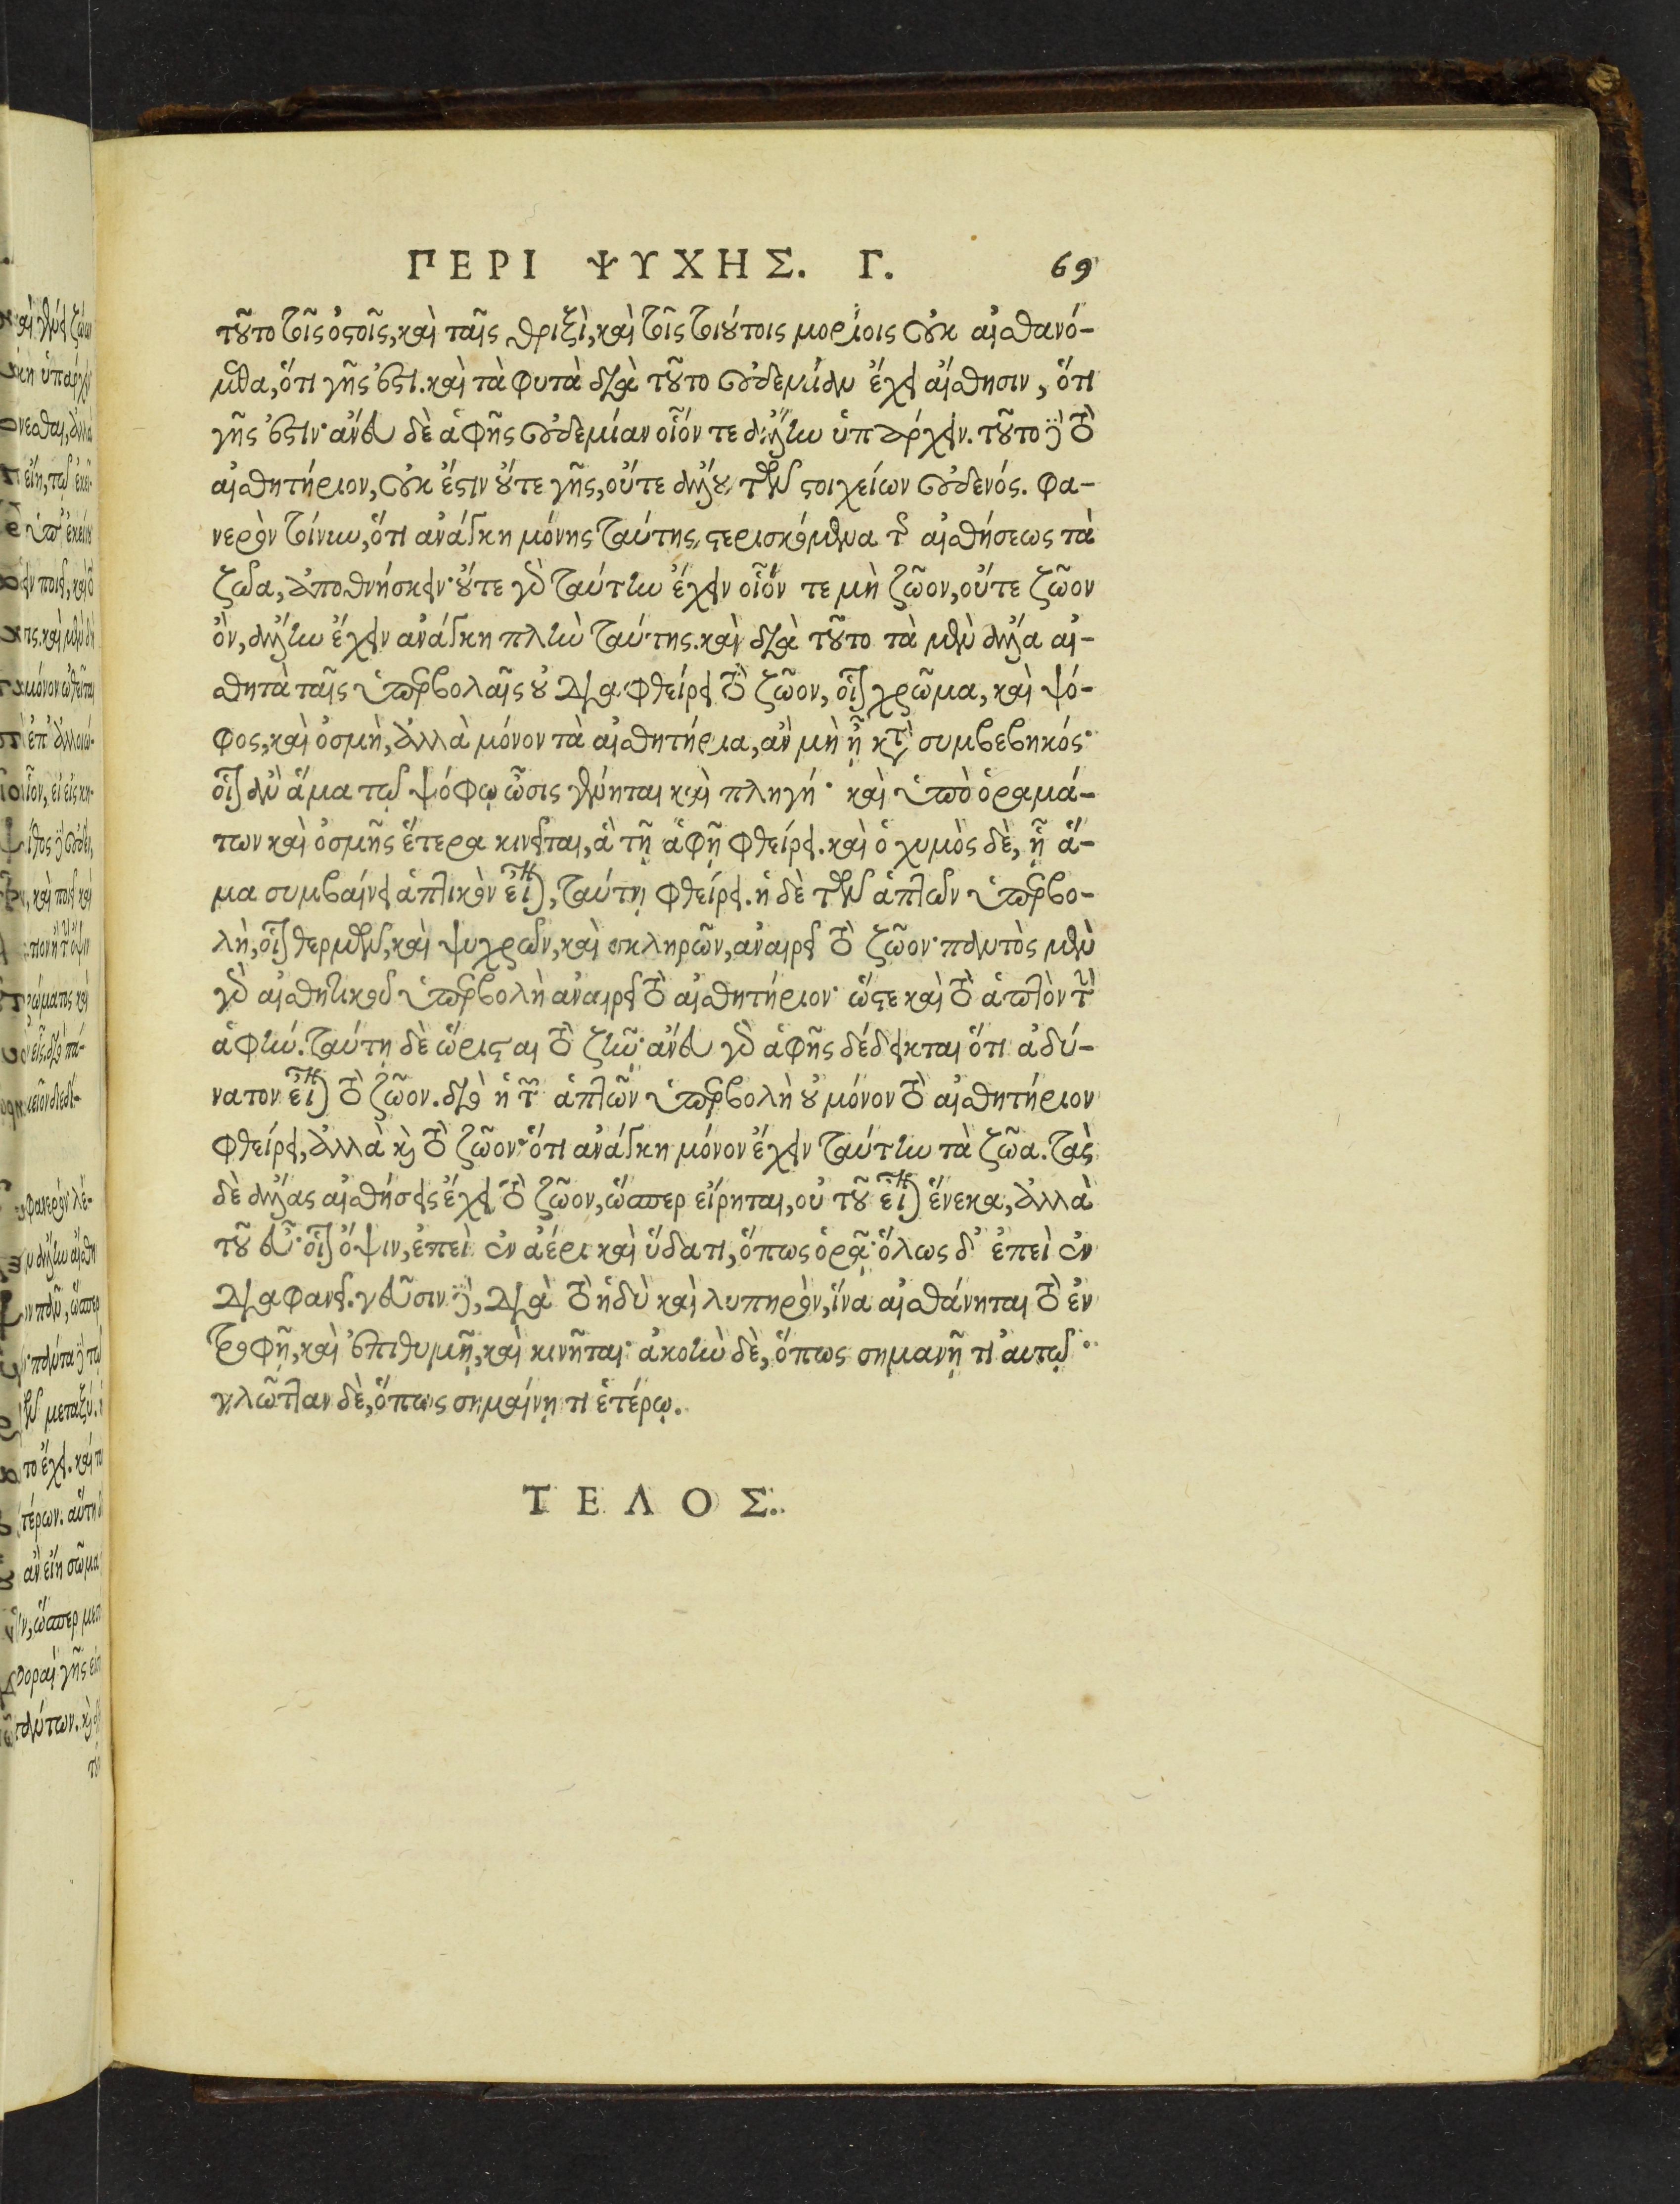 ΠΕΡΙ ΨΥΧΗΣ. Γ. 69
τοῦτο τοῖς ὀστοῖς, καὶ ταῖς θριξὶ, καὶ τοῖς τοιούτοις μορίοις οὐκ αἰσθανό-
μεθα, ὅτι γῆς ἐστι. καὶ τὰ φυτὰ διὰ τοῦτο οὐδεμίαν ἔχει αἴσθησιν, ὅτι
γῆς ἐστιν· ἄνευ δὲ ἁφῆς οὐδεμίαν οἷόν τε ἄλλην ὑπάρχειν. τοῦτο δὲ τὸ
αἰσθητήριον, οὐκ ἔστιν οὔτε γῆς, οὔτε ἄλλου τῶν στοιχείων οὐδενός. Φα-
νερὸν τοίνυν, ὅτι ἀνάγκη μόνης ταύτης στερισκόμενα τῆς αἰσθήσεως τὰ
ζῶα, ἀποθνήσκειν· οὔτε γὰρ ταύτην ἔχειν οἷόν τε μὴ ζῶον, οὔτε ζῶον
ὂν, ἄλλην ἔχειν ἀνάγκη πλὴν ταύτης. καὶ διὰ τοῦτο τὰ μὲν ἄλλα αἰ-
σθητὰ ταῖς ὑπερβολαῖς οὐ διαφθείρει τὸ ζῶον, οἷον χρῶμα, καὶ ψό-
φος, καὶ ὀσμὴ, ἀλλὰ μόνον τὰ αἰσθητήρια, ἂν μὴ ᾖ κατὰ συμβεβηκός·
οἷον ἂν ἅμα τῷ ψόφῳ ὦσις γένηται καὶ πληγή· καὶ ὑπὸ ὁραμά-
των καὶ ὀσμῆς ἕτερα κινεῖται, ἃ τῇ ἁφῇ φθείρει. καὶ ὁ χυμὸς δὲ, ᾗ ἅ-
μα συμβαίνει ἁπτικὸν εἶναι, ταύτῃ φθείρει. ἡ δὲ τῶν ἁπτῶν ὑπερβο-
λὴ, οἷον θερμῶν, καὶ ψυχρῶν, καὶ σκληρῶν, ἀναιρεῖ τὸ ζῶον· παντὸς μὲν
γὰρ αἰσθητικοῦ ὑπερβολὴ ἀναιρεῖ τὸ αἰσθητήριον· ὥστε καὶ τὸ ἁπτὸν τὴν
ἁφήν. ταύτῃ δὲ ὥρισται τὸ ζῆν· ἄνευ γὰρ ἁφῆς δέδεικται ὅτι ἀδύ-
νατον εἶναι τὸ ζῶον. διὸ ἡ τῶν ἁπτῶν ὑπερβολὴ οὐ μόνον τὸ αἰσθητήριον
φθείρει, ἀλλὰ καὶ τὸ ζῶον· ὅτι ἀνάγκη μόνον ἔχειν ταύτην τὰ ζῶα. τὰς
δὲ ἄλλας αἰσθήσεις ἔχει τὸ ζῶον, ὥσπερ εἴρηται, οὐ τοῦ εἶναι ἕνεκα, ἀλλὰ
τοῦ εὖ· οἷον ὄψιν, ἐπεὶ ἐν ἀέρι καὶ ὕδατι, ὅπως ὁρᾷ· ὅλως δ' ἐπεὶ ἐν
διαφανεῖ. γεῦσιν δὲ, διὰ τὸ ἡδὺ καὶ λυπηρὸν, ἵνα αἰσθάνηται τὸ ἐν
τροφῇ, καὶ ἐπιθυμῇ, καὶ κινῆται· ἀκοὴν δὲ, ὅπως σημανῇ τι αὐτῷ·
γλῶτταν δὲ, ὅπως σημαίνῃ τι ἑτέρῳ.
ΤΕΛΟΣ.